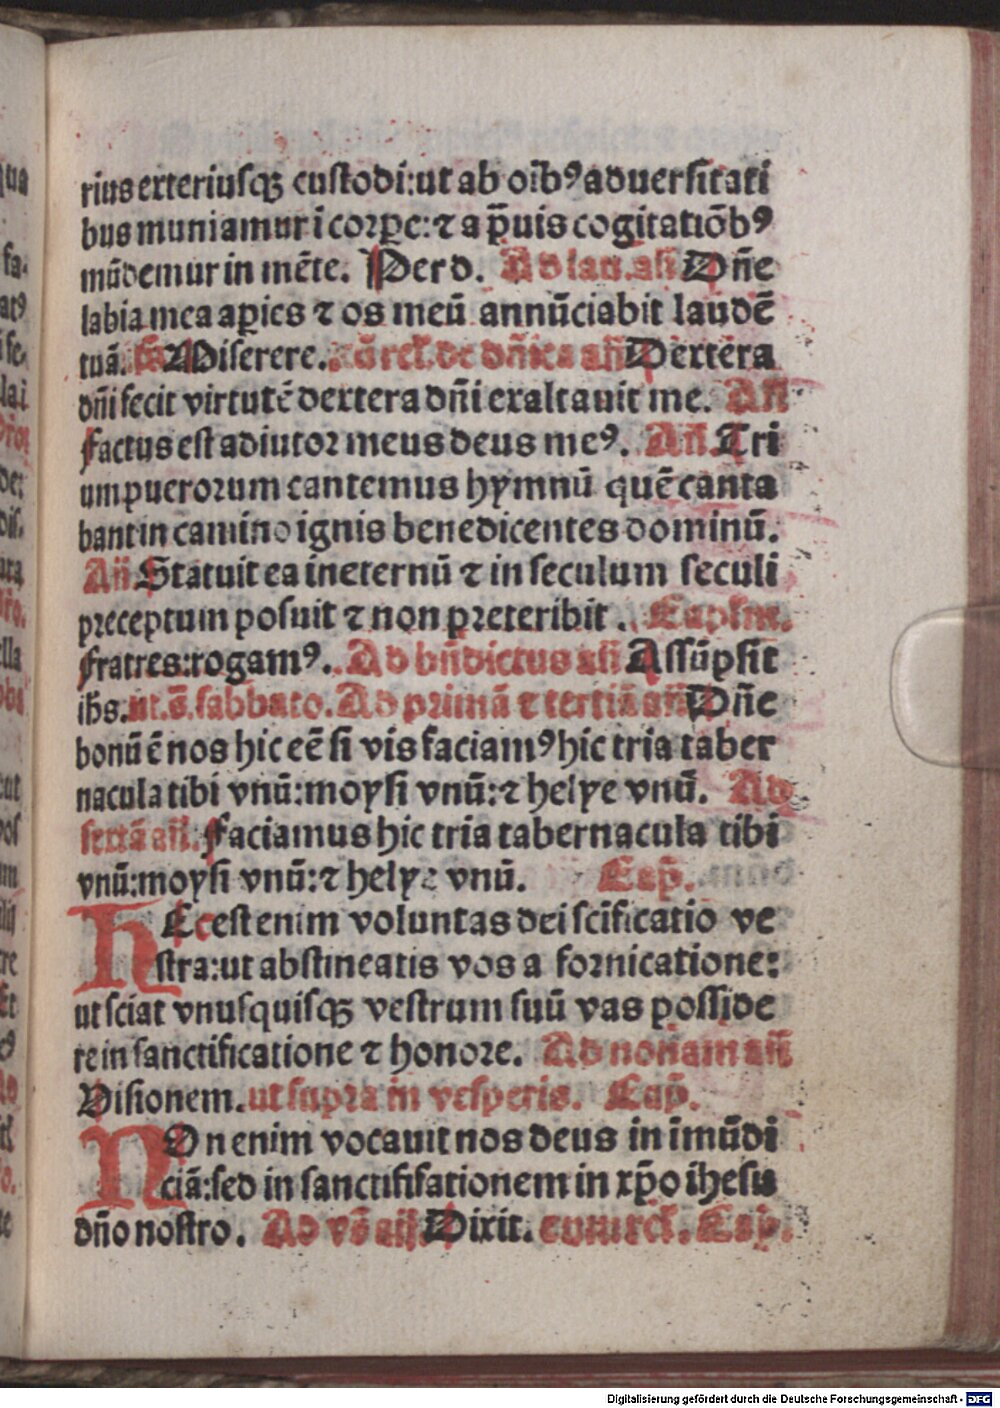 rius exteriusqȝ custodi: ut ab oīb⁹ aduersitati
bus muniamur ī corꝑe: ⁊ a p̄uis cogitatiōb⁹
mūdemur in mēte. Per d. Ad lau. añ Dñe
labia mea aꝑies ⁊ os meū annūciabit laudē
tuā. Miserere. cū rel̄. de dñica añ Dextera
dñi fecit virtutē dextera dñi exaltauit me. Añ
Factus est adiutor meus deus me⁹. Añ. Tri
um puerorum cantemus hymnū quē canta
bant in camino ignis benedicentes dominū.
Añ Statuit ea in eternū ⁊ in seculum seculi
preceptum posuit ⁊ non preteribit.
Fratres: rogam⁹. Ad bñdictus añ Assūpsit
ihs. ut. s̄. sabbato. Ad primā ⁊ tertiā añ Dñe
bonū ē nos hic eē si vis faciam⁹ hic tria taber
nacula tibi vnū: moysi vnū: ⁊ helye vnū. Ad
sextā añ. Faciamus hic tria tabernacula tibi
vnū: moysi vnū: ⁊ helye vnū. Cap̄.
HEc est enim voluntas dei scīficatio ve
stra: ut abstineatis vos a fornicatione:
ut sciat vnusquisqȝ vestrum suū vas posside
re in sanctificatione ⁊ honore. Ad nonam añ
Visionem. ut supra in vesperis. Cap̄.
NOn enim vocauit nos deus in īmūdi
ciā: sed in sanctififationem in xp̄o ihesu
dño nostro. Ad vs̄ añ Dixit. cum rel̄. Cap̄.
Digitalisierung gefördert durch die Deutsche Forschungsgemeinschaft - DFG